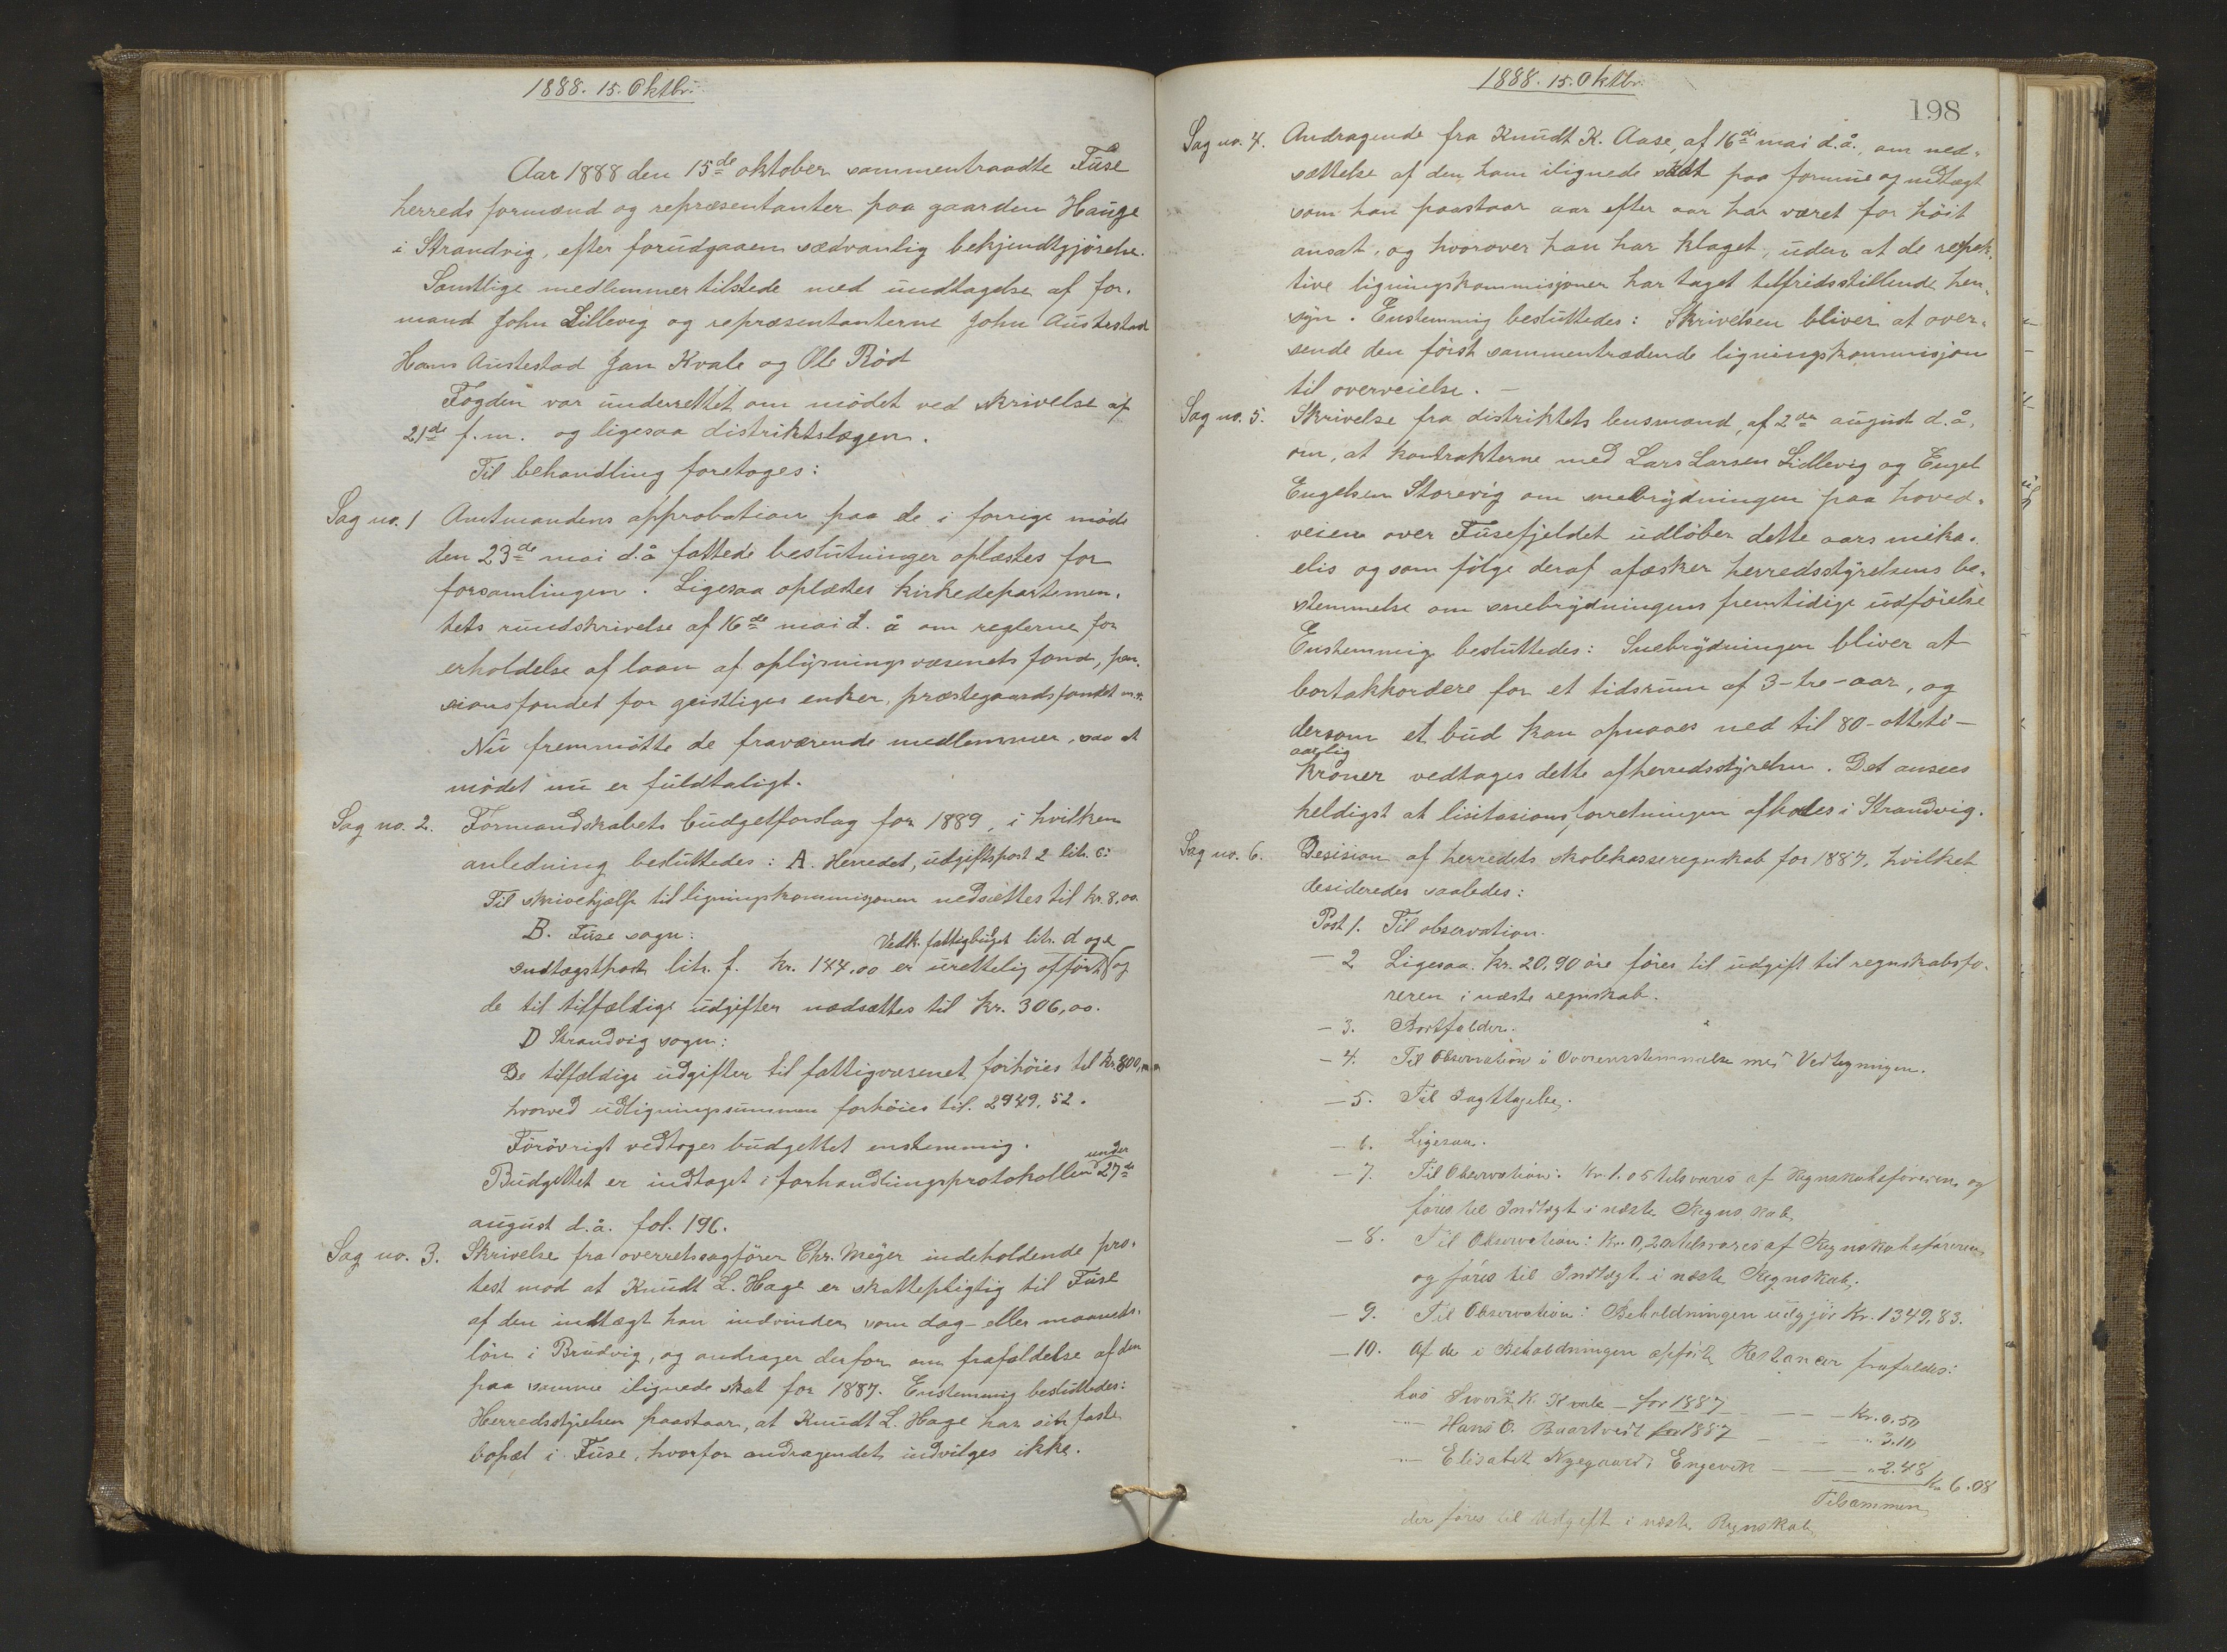 1888. 15. Oktbr.
Aar 1888 den 15de oktober sammentraadte Fuse
herreds formænd og repræsentanter paa gaarden Hauge
i Strandvig, efter forudgaaen sædvanlig bekjendtgjörelse.
Samtlige medlemmer tilstede med undtagelse af for-
mand John Lillevig og repræsentanterne John Austestad
Hans Austestad Jan Kvale og Ole Röd
Fogden var underrettet om mödet ved skrivelse af
21de f.m. og ligesaa distriktslægen.
Til behandling foretoges:
Sag no. 1 Amtmandens approbation paa de i forrige möde
den 23de mai d.å fattede beslutninger oplæstes for
forsamlingen. Ligesaa oplæstes kirkedepartemen-
tets rundskrivelse af 16de mai d. å om reglerne for
erholdelse af laan af oplysningsvæsenets fond, pen-
sionsfondet for geistliges enker, præstegaardsfondet m.v.
Nu fremmötte de fraværende medlemmer, saa at
mödet nu er fuldtaligt.
Sag no. 2. Formandskabets budgetforslag for 1889, i hvilken
anledning besluttedes: A. Herredet, udgiftspost 2 litr. c:
Til skrivehjælp til ligningskommisjonen nedsættes til kr. 8,00.
B. Fuse sogn:
Vedk. fattigbudget litr. d og e
indtægtspost litr. f. kr. 144,00 er urettelig opfört og
de til tilfældige udgifter nedsættes til kr. 306,00.
D Strandvig sogn:
De tilfældige udgifter til fattigvæsenet forhöies til kr. 800,00
hvorved udligningssummen forhöies til. 2949,52.
Forövrigt vedtages budgettet enstemmig.
Budgettet er indtaget i forhandlingsprotokollen under 27de
august d.å. fol. 196.
Sag no. 3. Skrivelse fra overretssagförer Chr. Meyer indeholdende pro-
test mod at Knudt L. Hage er skattepligtig til Fuse
af den indtægt han indvinder som dag- eller maaneds-
lön i Bruvig, og andrager derfor om frafaldelse af den
paa samme ilignede skat for 1887. Enstemmig besluttedes:
Herredsstyrelsen paastaar, at Knudt L. Hage har sin faste
bopæl i Fuse, hvorfor andragendet indvilges ikke.
1888. 15. Oktbr.
198
Sag no. 4. Andragende fra Knudt K. Aase, af 16de mai d.å., om ned-
sættelse af den ham ilignede skat paa formue og indtægt
som han paastaar aar efter aar har været for höit
ansat, og hvorover han har klaget, uden at de respek-
tive ligningskommisjoner har taget tilfredsstillende hen-
syn. Enstemmig besluttedes: Skrivelsen bliver at over-
sende den först sammentrædende ligningskommisjon
til overveielse.
Sag no. 5. Skrivelse fra distriktets lensmand, af 2den august d.å.
om, at kontrakterne med Lars Larsen Lidlevig og Engel
Engelsen Storevig om snebrydningen paa hoved-
veien over Fusefjeldet udlöber dette aars mika-
elis og som fölge deraf afæsker herredsstyrelsens be-
stemmelse om snebrydningens fremtidige udförelse
Enstemmig besluttedes: Snebrydningen bliver at
bortakkordere for et tidsrum af 3-tre-aar, og
dersom et bud kan opnaaes ned til 80-otteti-
aarlig
kroner vedtages dette af herredsstyrelsen. Det ansees
heldigst at lisitasionsforretningen afholdes i Strandvig.
Sag no. 6. Desision af herredets skolekasseregnskab for 1887, hvilket
desideredes saaledes:
Post 1. Til observation.
- 2 Ligesaa. Kr. 20,90 öre föres til udgift til regnskabsfö-
reren i næste regnskab.
- 3. Bortfalder.
- 4. Til Observation i Overensstemmelse med Vedtegningen.
- 5. Til Iagttagelse.
- 6. Ligesaa.
- 7. Til Observation: Kr. 1.05 tilsvares af Regnskabsföreren og
föres til Indtægt i næste Regnskab.
- 8. Til Observation: Kr. 0,20 tilsvares af Regnskabsföreren
og föres til Indtægt i næste Regnskab.
- 9. Til Observation: Beholdningen udgjör Kr. 1349,83.
- 10. Af de i Beholdningen opförte Restancer frafaldes:
hos K. Kvale - for 1887 - - Kr. 0.50
-"- Hans O. for 1887 - - " 3.10
-"- Elisabet Nygaard, Engevik - - " 2.48
Kr. 6.08
Tilsammen
der föres til Udgift i næste Regnskab